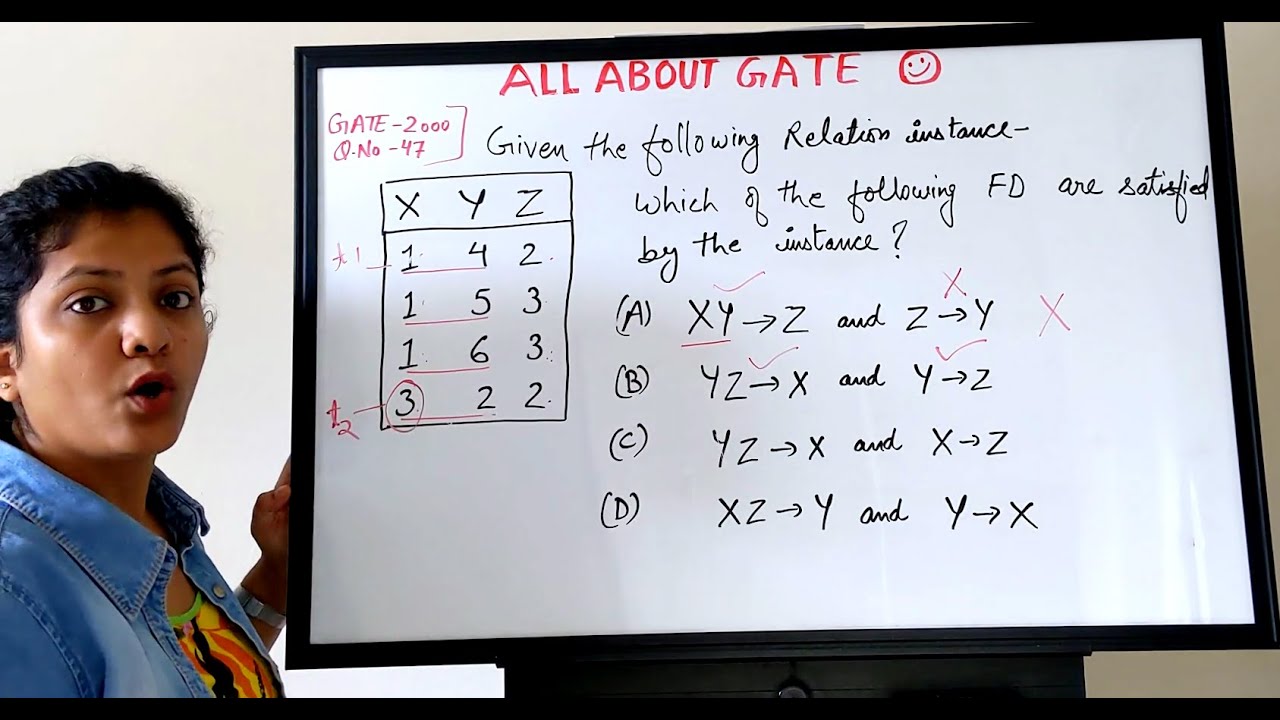 ALL ABOUT GATE
GATE-2000
Q.No-47
Given the following Relation instance-
which of the following FD are satisfied
by the instance?
X Y Z
t1 1 4 2
1 5 3
1 6 3
t2 3 2 2
(A) XY→Z and Z→Y X
(B) YZ→X and Y→Z
(C) YZ→X and X→Z
(D) XZ→Y and Y→X